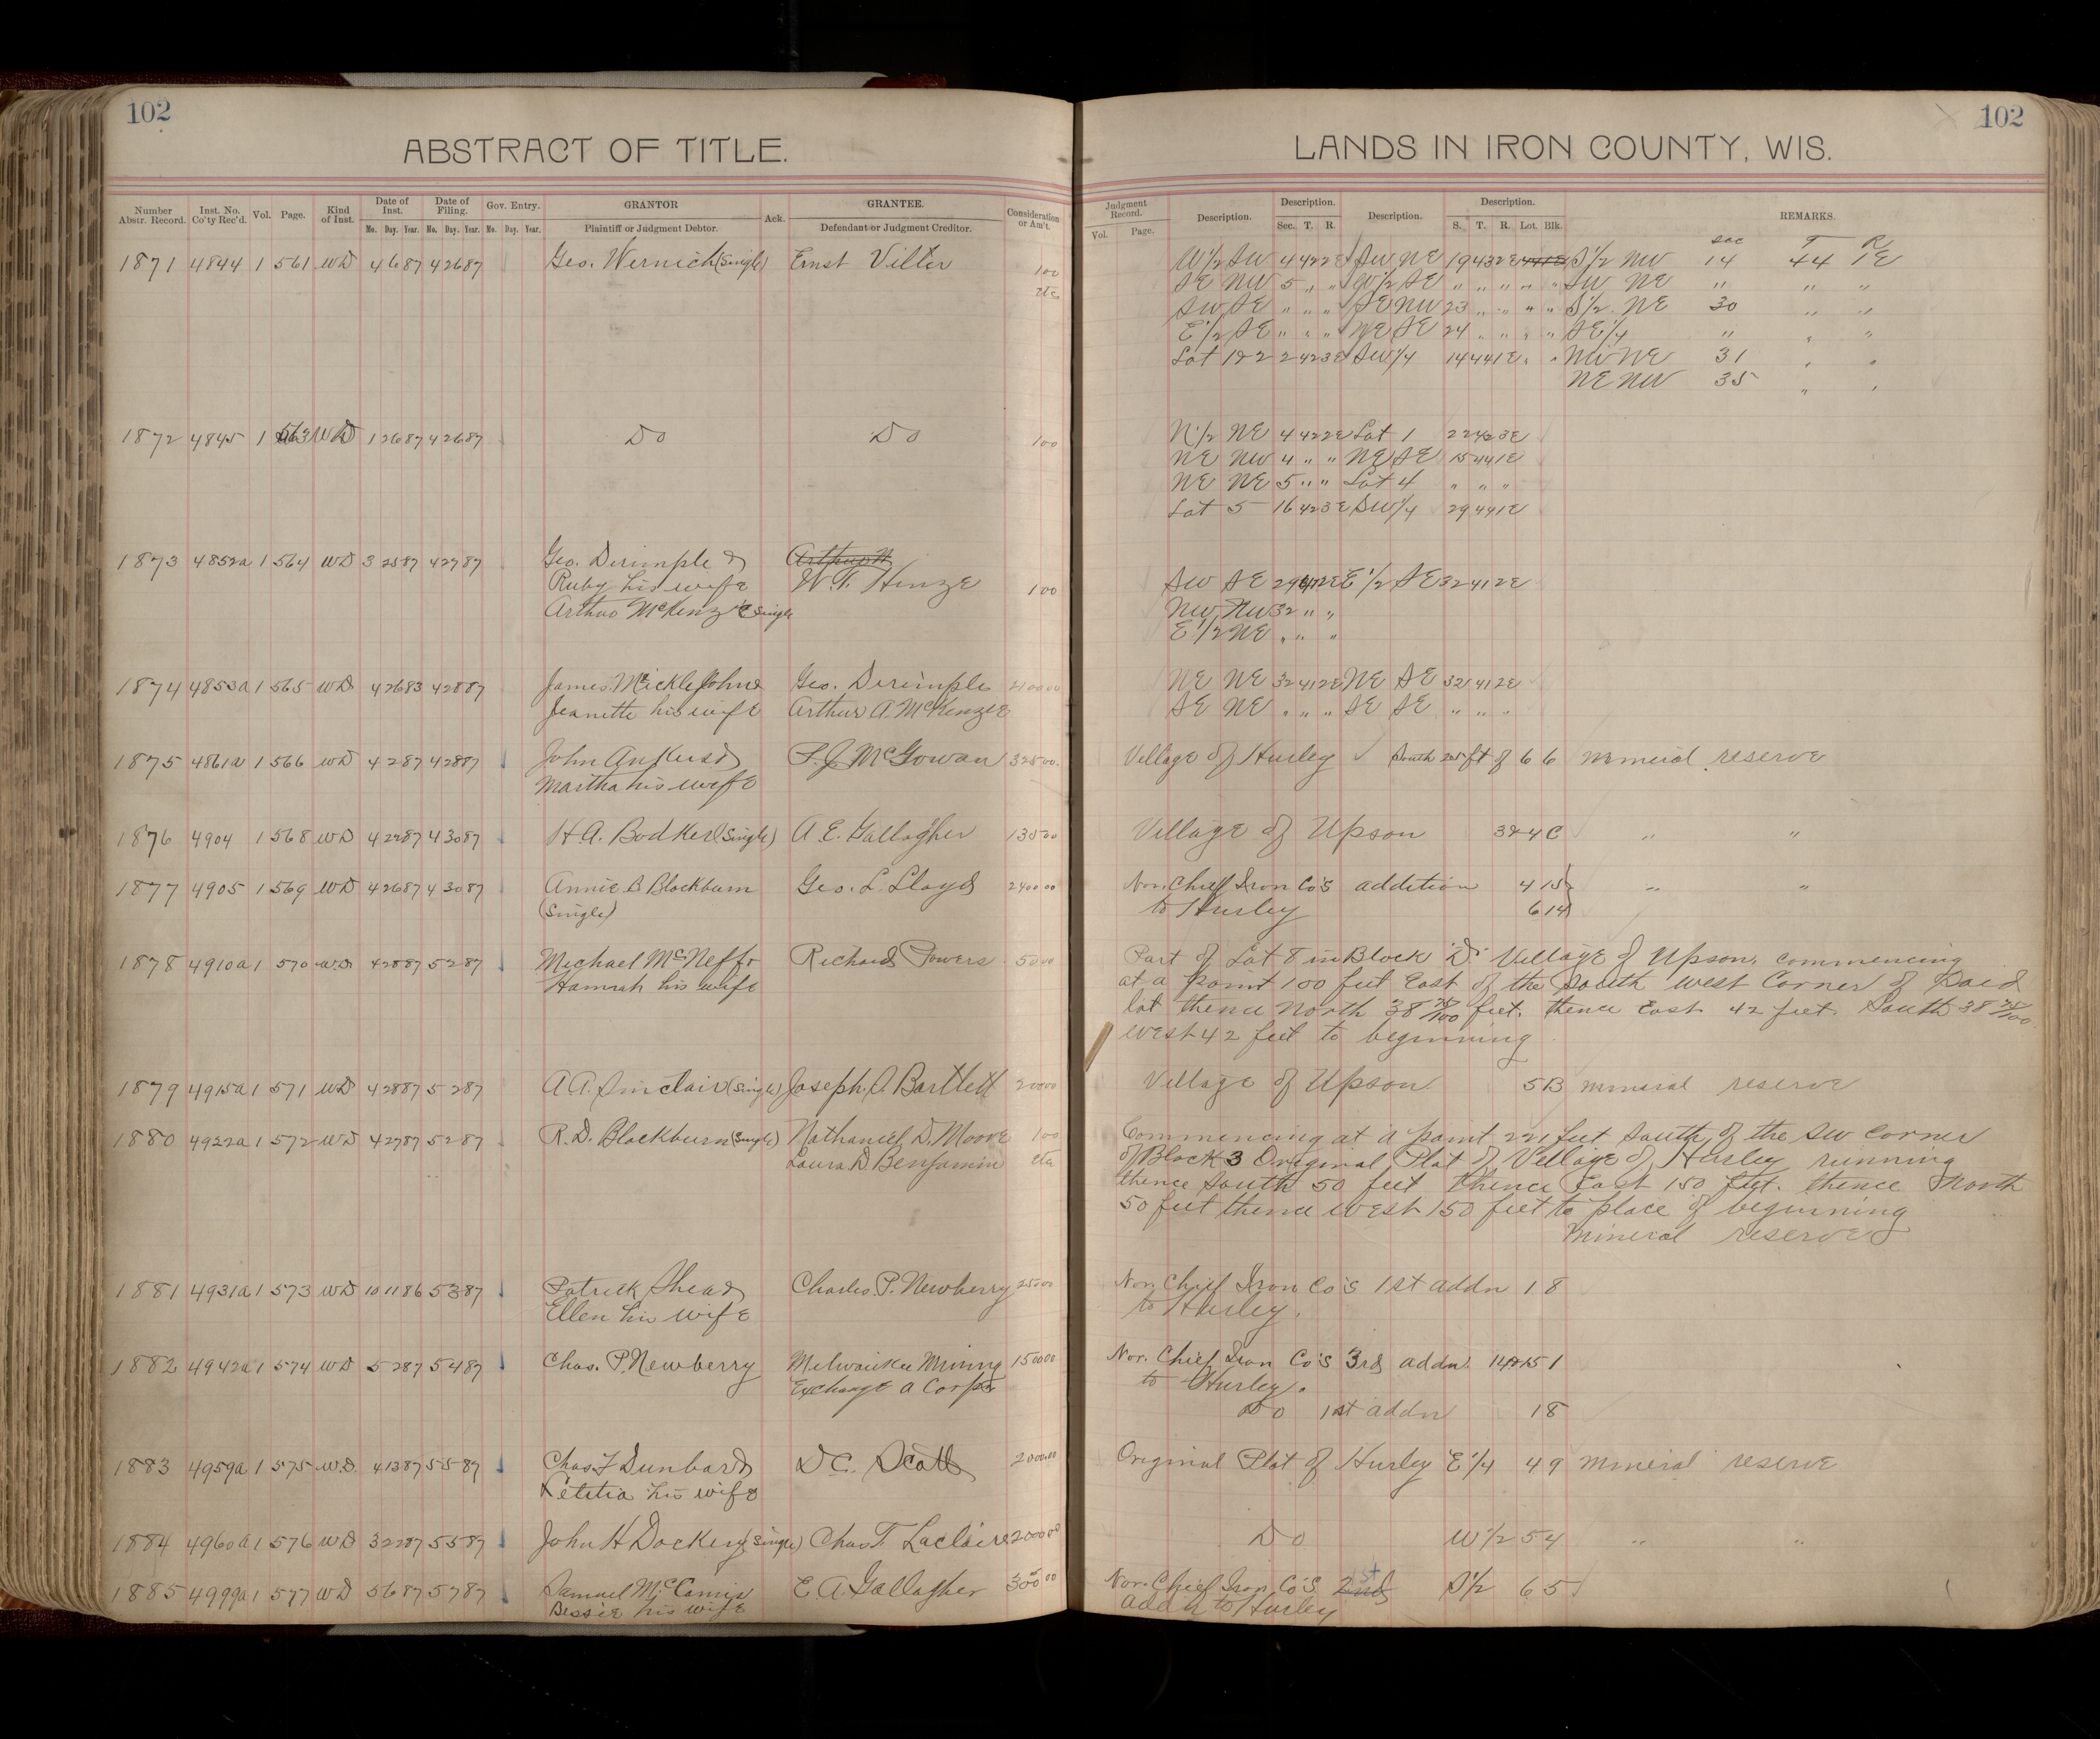 102
ABSTRACT OF TITLE.
Number Abstr. Record. Inst. No. Co'ty Rec'd. Vol. Page. Kind of Inst. Date of Inst. Mo. Day. Year. Date of Filing. Mo. Day. Year. Gov. Entry. Mo. Day. Year. GRANTOR Plaintiff or Judgment Debtor. Ack. GRANTEE. Defendant or Judgment Creditor. Consideration or Am't.
1871 4844 1 561 WD 4 6 87 4 26 87 Geo. Wernich (Single) Ernst Villter 1 00
etc
1872 4845 1 563 WD 1 26 87 4 26 87 Do Do 1 00
1873 4852a 1 564 WD 3 25 87 4 27 87 Geo. Dirimple & Arthur H
Ruby his wife W. F. Hinze 1 00
Arthur McKenzie Single
1874 4853a 1 565 WD 4 26 83 4 28 87 James McEickleJohn & Geo. Dirimple 400 00
Jeanette his wife Arthur A. McKenzie
1875 4861a 1 566 WD 4 2 87 4 28 87 John Ankus & P. J. McGowan 325 00
Martha his wife
1876 4904 1 568 WD 4 22 87 4 30 87 H. A. Bodker (Single) A. E. Gallagher 135 00
1877 4905 1 569 WD 4 26 87 4 30 87 Annie B Blackburn Geo. L. Lloyd 2400 00
(Single)
1878 4910a 1 570 W.D 4 28 87 5 2 87 Michael McNeff & Richard Powers 50 00
Hannah his wife
1879 4915a 1 571 WD 4 28 87 5 2 87 A. A. Sinclair (Single) Joseph A Bartlett 200 00
1880 4922a 1 572 WD 4 27 87 5 2 87 R. D. Blackburn (Single) Nathaniel D. Moore 1 00
Laura D Benjamin etc
1881 4931a 1 573 WD 10 11 86 5 3 87 Patrick Shea & Charles P. Newberry 250 00
Ellen his wife
1882 4942a 1 574 WD 5 2 87 5 4 87 Chas. P. Newberry Milwaukee Mining 1500 00
Exchange a Corp
1883 4959a 1 575 W.D. 4 13 87 5 5 87 Chas. F Dunbar & D C. Scott 2000 00
Letitia his wife
1884 4960a 1 576 WD 3 22 87 5 5 87 John H Dockery (Single) Chas T. Laclaire 2000 00
1885 4999a 1 577 WD 5 6 87 5 7 87 Samuel McCamis E A Gallagher 300 00
Bessie his wife
102
LANDS IN IRON COUNTY, WIS.
Judgment Record. Vol. Page. Description. Description. Sec. T. R. Description. Description. S. T. R. Lot. Blk. REMARKS.
Sec T R
W 1/2 SW 4 42 2E SW NE 19 43 2E S 1/2 NW 14 44 1E
SE NW 5 " " W 1/2 SE " " " " " SW NE " " "
SW SE " " " SE NW 23 " " " " S 1/2 NE 30 " "
E 1/2 SE " " " NE SE 24 " " " " SE 1/4 " " "
Lot 1 & 2 2 42 3E SW 1/4 14 44 1E " " NW NE 31 " "
NE NW 35 " "
N 1/2 NE 4 42 2E Lot 1 22 42 3E
NE NW 4 " " NE SE 15 44 1E
NE NE 5 " " Lot 4 " " "
Lot 5 16 42 3E SW 1/4 29 44 1E
SW SE 29 41 2E E 1/2 SE 32 41 2E
NW NW 32 " "
E 1/2 NE " " "
NE NE 32 41 2E NE SE 32 41 2E
SE NE " " " SE SE " " "
Village of Hurley South 25 ft of 6 6 Mineral reserve
Village of Upson 32 4 C " "
Nor. Chief Iron Co's addition 4 15 " "
to Hurley 6 14
Part of Lot 8 in Block "D" Village of Upson, commencing
at a point 100 feet East of the South west Corner of Said
lot thence North 38 75/100 feet. thence East 42 feet South 38 75/100
west 42 feet to beginning
Village of Upson 5 B mineral reserve
Commencing at a point 221 feet South of the SW corner
of Block 3 Original Plat of Village of Hurley running
thence South 50 feet thence East 150 feet. thence North
50 feet thence west 150 feet to place of beginning
Mineral reserve
Nor. Chief Iron Co's 1st addn 1 8
to Hurley.
Nor. Chief Iron Co's 3rd addn. 14&15 1
to Hurley.
Do 1st addn 1 8
Original Plat of Hurley E 1/4 4 9 Mineral reserve
Do W 1/2 5 4 " "
Nor. Chief Iron Co's 2nd 1st S 1/2 6 5
addn to Hurley